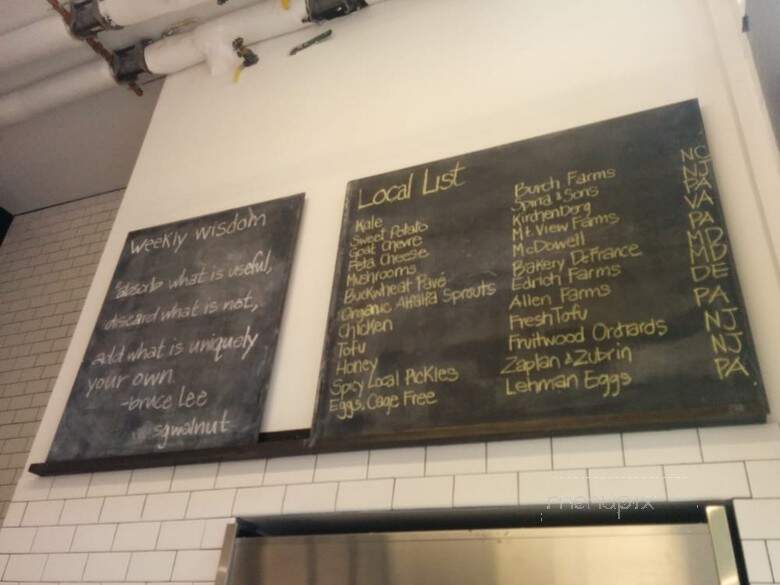 weekly wisdom
"absorb what is useful,
discard what is not,
add what is uniquely
your own.
-bruce lee
sgwalnut
Local List
Kale
Sweet Potato
Goat Chevre
Feta Cheese
Mushrooms
Buckwheat Pavé
Organic Alfalfa Sprouts
Chicken
Tofu
Honey
Spicy Local Pickles
Eggs, Cage Free
Burch Farms
Spina & Sons
Kirchenberg
Mt. View Farms
McDowell
Bakery DeFrance
Edrich Farms
Allen Farms
Fresh Tofu
Fruitwood Orchards
Zaplan & Zubrin
Lehman Eggs
NC
NJ
PA
VA
PA
MD
MD
DE
PA
NJ
NJ
PA
menupix